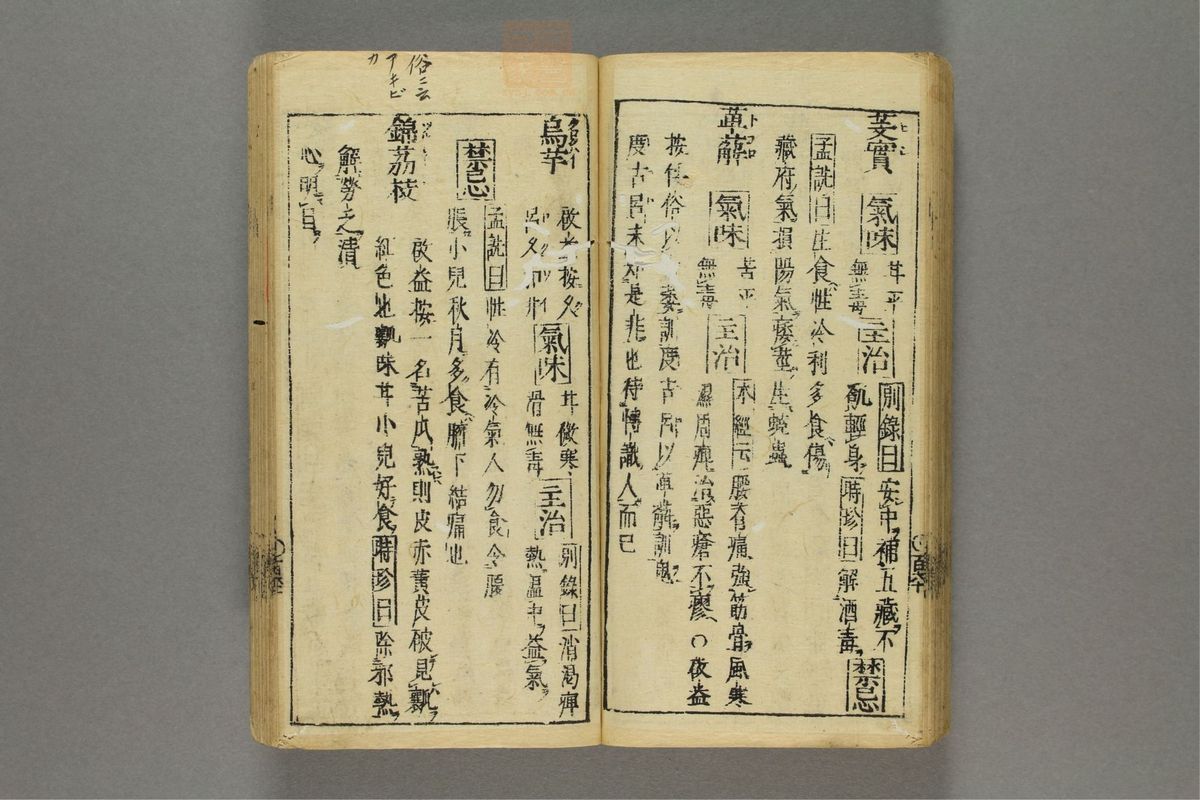 芰實
氣味 甘平
無毒
主治 別錄曰安中補五藏不
飢輕身時珍曰解酒毒
禁忌
孟詵曰生食性冷利多食傷
藏府氣損陽氣痿莖生蟯蟲
萆薢
氣味 苦平
無毒
主治 本經云腰脊痛強筋骨風寒
濕周痺治惡瘡不瘳〇啟益
按
度古呂未知是非也待博識人而已
烏芋
啟益按久
氣味 甘微寒
滑無毒
主治 別錄曰消渴痺
熱溫中益氣
禁忌
孟詵曰性冷有冷氣人勿食令腹
脹小兒秋月多食臍下結痛也
俗ニ云
アキビ
カ
錦荔枝
啟益按一名苦瓜熟則皮赤黃皮破見瓤
紅色也瓤味甘小兒好食時珍曰除邪熱
解勞乏清
心明目